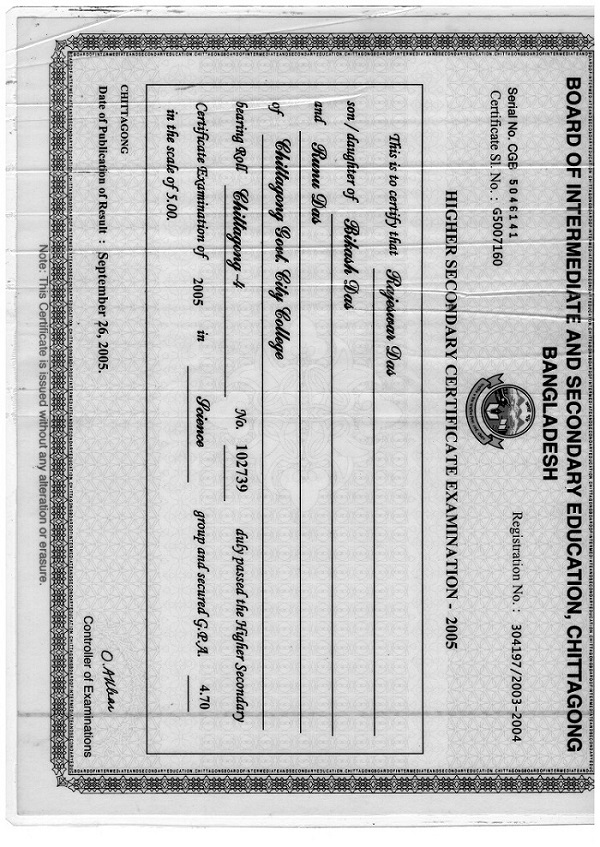 BOARD OF INTERMEDIATE AND SECONDARY EDUCATION, CHITTAGONG
BANGLADESH
Serial No. CGB 5046141
Certificate Sl. No. : G5007160
Registration No. : 304197/2003-2004
HIGHER SECONDARY CERTIFICATE EXAMINATION - 2005
This is to certify that Rajeswar Das
son / daughter of Bikash Das
and Runu Das
of Chittagong Govt. City College
bearing Roll Chittagong-4 No. 102739 duly passed the Higher Secondary
Certificate Examination of 2005 in Science group and secured G.P.A. 4.70
in the scale of 5.00.
CHITTAGONG
Date of Publication of Result : September 26, 2005.
Controller of Examinations
Note: This Certificate is issued without any alteration or erasure.